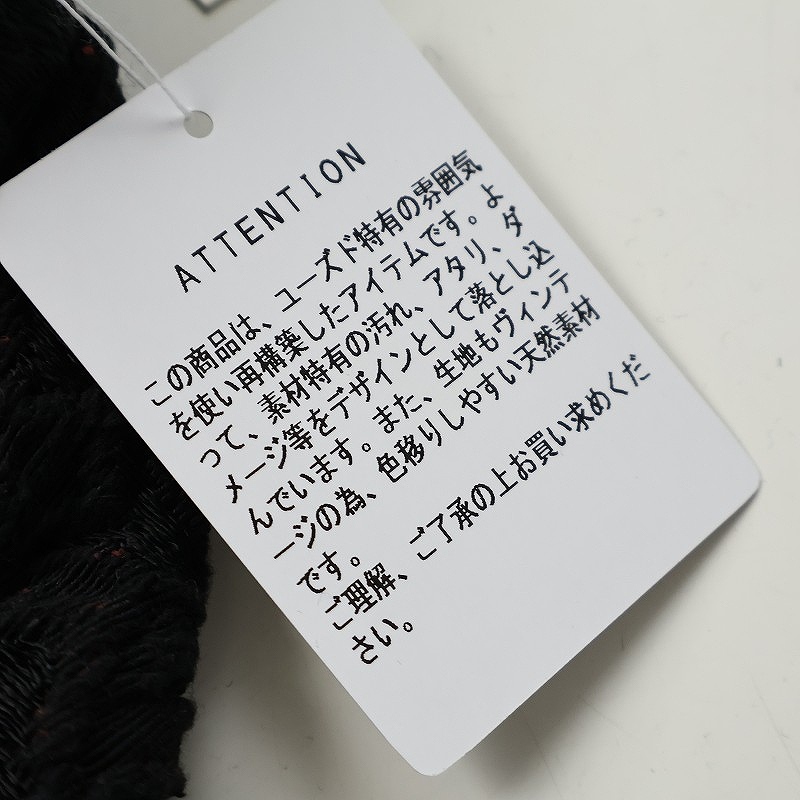 ATTENTION
この商品は、ユーズド特有の雰囲気
を使い再構築したアイテムです。よ
って、素材特有の汚れ、アタリ、ダ
メージ等をデザインとして落とし込
んでいます。また、生地もヴィンテ
ージの為、色移りしやすい天然素材
です。
ご理解、ご了承の上お買い求めくだ
さい。